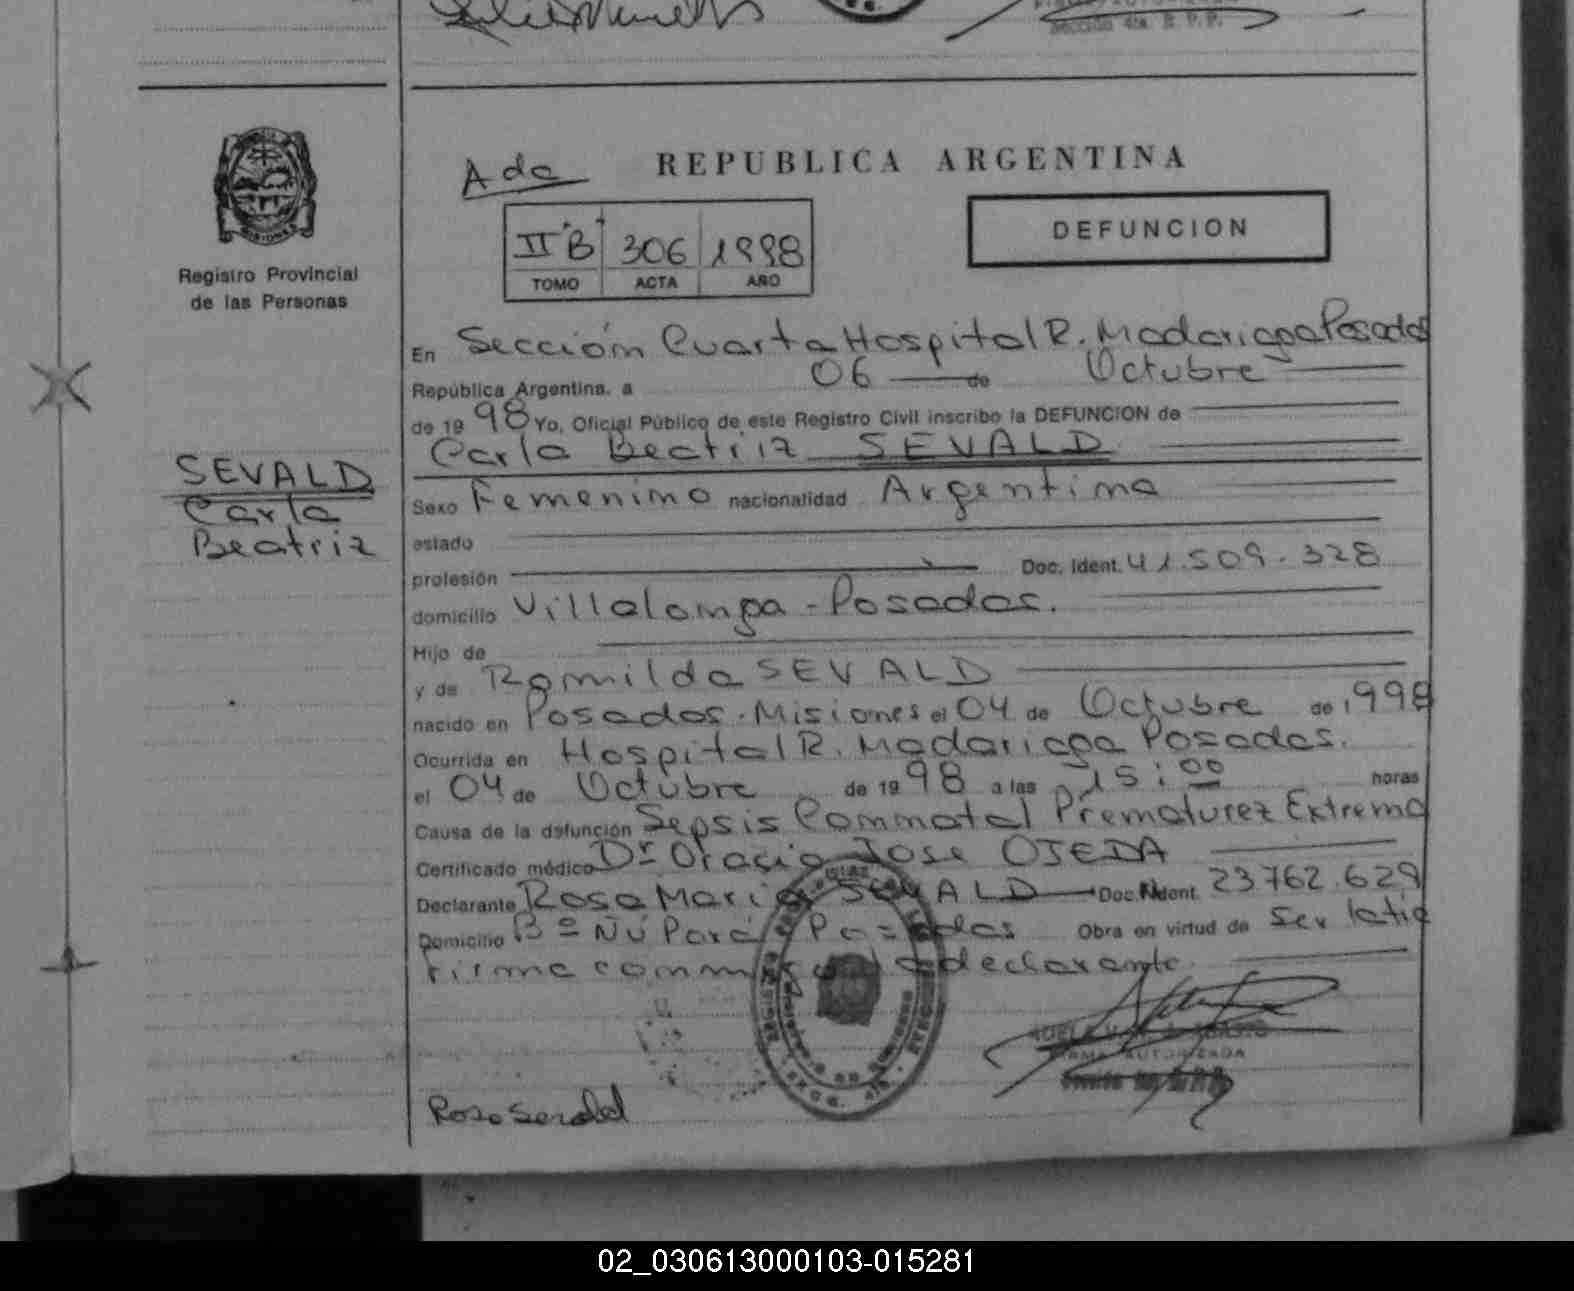 Sección 4ta. R.P.P.
Ada
REPUBLICA ARGENTINA
MISIONES
Registro Provincial
de las Personas
II"B" 306 1998
TOMO ACTA AÑO
DEFUNCION
En Sección Cuarta Hospital R. Madariaga Posadas
República Argentina, a 06 de Octubre
de 1998 Yo, Oficial Público de este Registro Civil inscribo la DEFUNCION de
Carla Beatriz SEVALD
SEVALD
Carla
Beatriz
Sexo Femenino nacionalidad Argentina
estado
profesión Doc. Ident. 41.509.328
domicilio Villalonga - Posadas.
Hijo de
y de Romilda SEVALD
nacido en Posadas. Misiones el 04 de Octubre de 1998
Ocurrida en Hospital R. Madariaga Posadas.
el 04 de Octubre de 1998 a las 15:00 horas
Causa de la defunción Sepsis Connatal Prematurez Extrema
Certificado médico Dr Oracio Jose OJEDA
Declarante Rosa Maria SEVALD Doc. Ident. 23762.629
Domicilio Bº Ñú Porá Posadas Obra en virtud de Ser latia
Firma conmigo la declarante.
FIRMA AUTORIZADA
Rosa Sevald
02_030613000103-015281